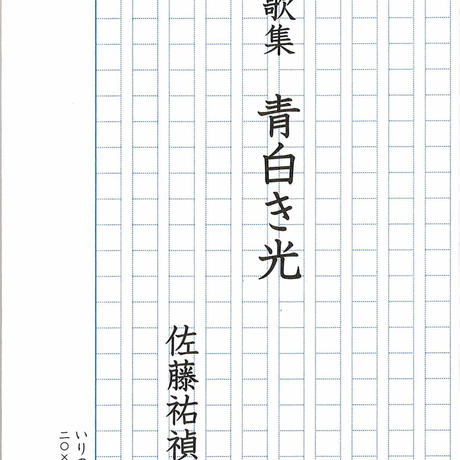 歌集 青白き光
佐藤祐禎
いりの
二〇×